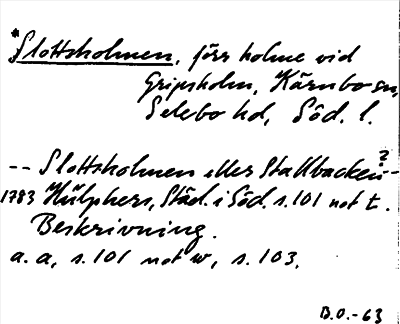 *Slottsholmen, förr holme vid
Gripsholm, Kärnbo sn,
Selebo hd, Söd. l.
-- Slottsholmen eller Stallbacken?--
1783 Hülphers, Städ. i Söd. s.101 not t.
Beskrivning.
a. a, s.101 not w, s.103.
B.O.-63